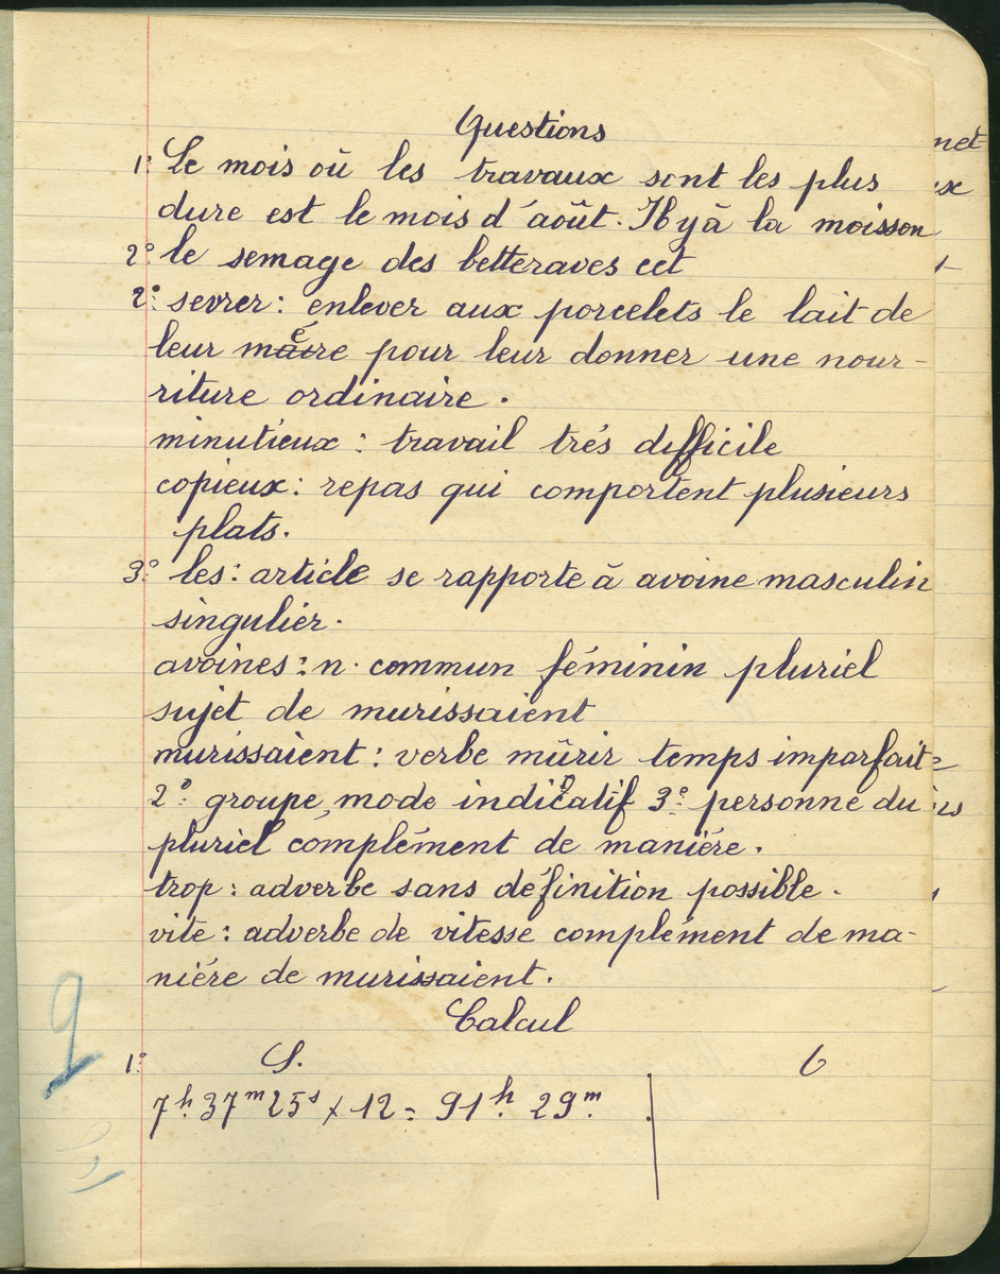 Questions
1° Le mois où les travaux sont les plus
dure est le mois d'août. Il y à la moisson
2° le semage des betteraves cet
2° sevrer : enlever aux porcelets le lait de
leur mère pour leur donner une nour-
riture ordinaire.
minutieux : travail trés difficile
copieux : repas qui comportent plusieurs
plats.
3° les : article se rapporte à avoine masculin
singulier.
avoines : n. commun féminin pluriel
sujet de murissaient
murissaient : verbe mûrir temps imparfait
2° groupe mode indicatif 3° personne du
pluriel complément de maniére.
trop : adverbe sans définition possible.
vite : adverbe de vitesse complément de ma-
niére de murissaient.
9
Calcul
1° S. O
7h 37m 25s x 12 = 91h 29m
net
ux